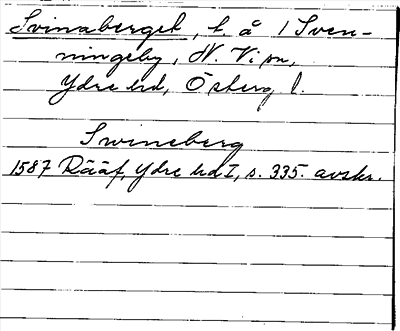 Svinaberget, t. å / Sven-
ningeby, N. Vi sn,
Ydre hd, Österg. l.
Swineberg
1587 Rääf, Ydre hd I, s. 335. avskr.